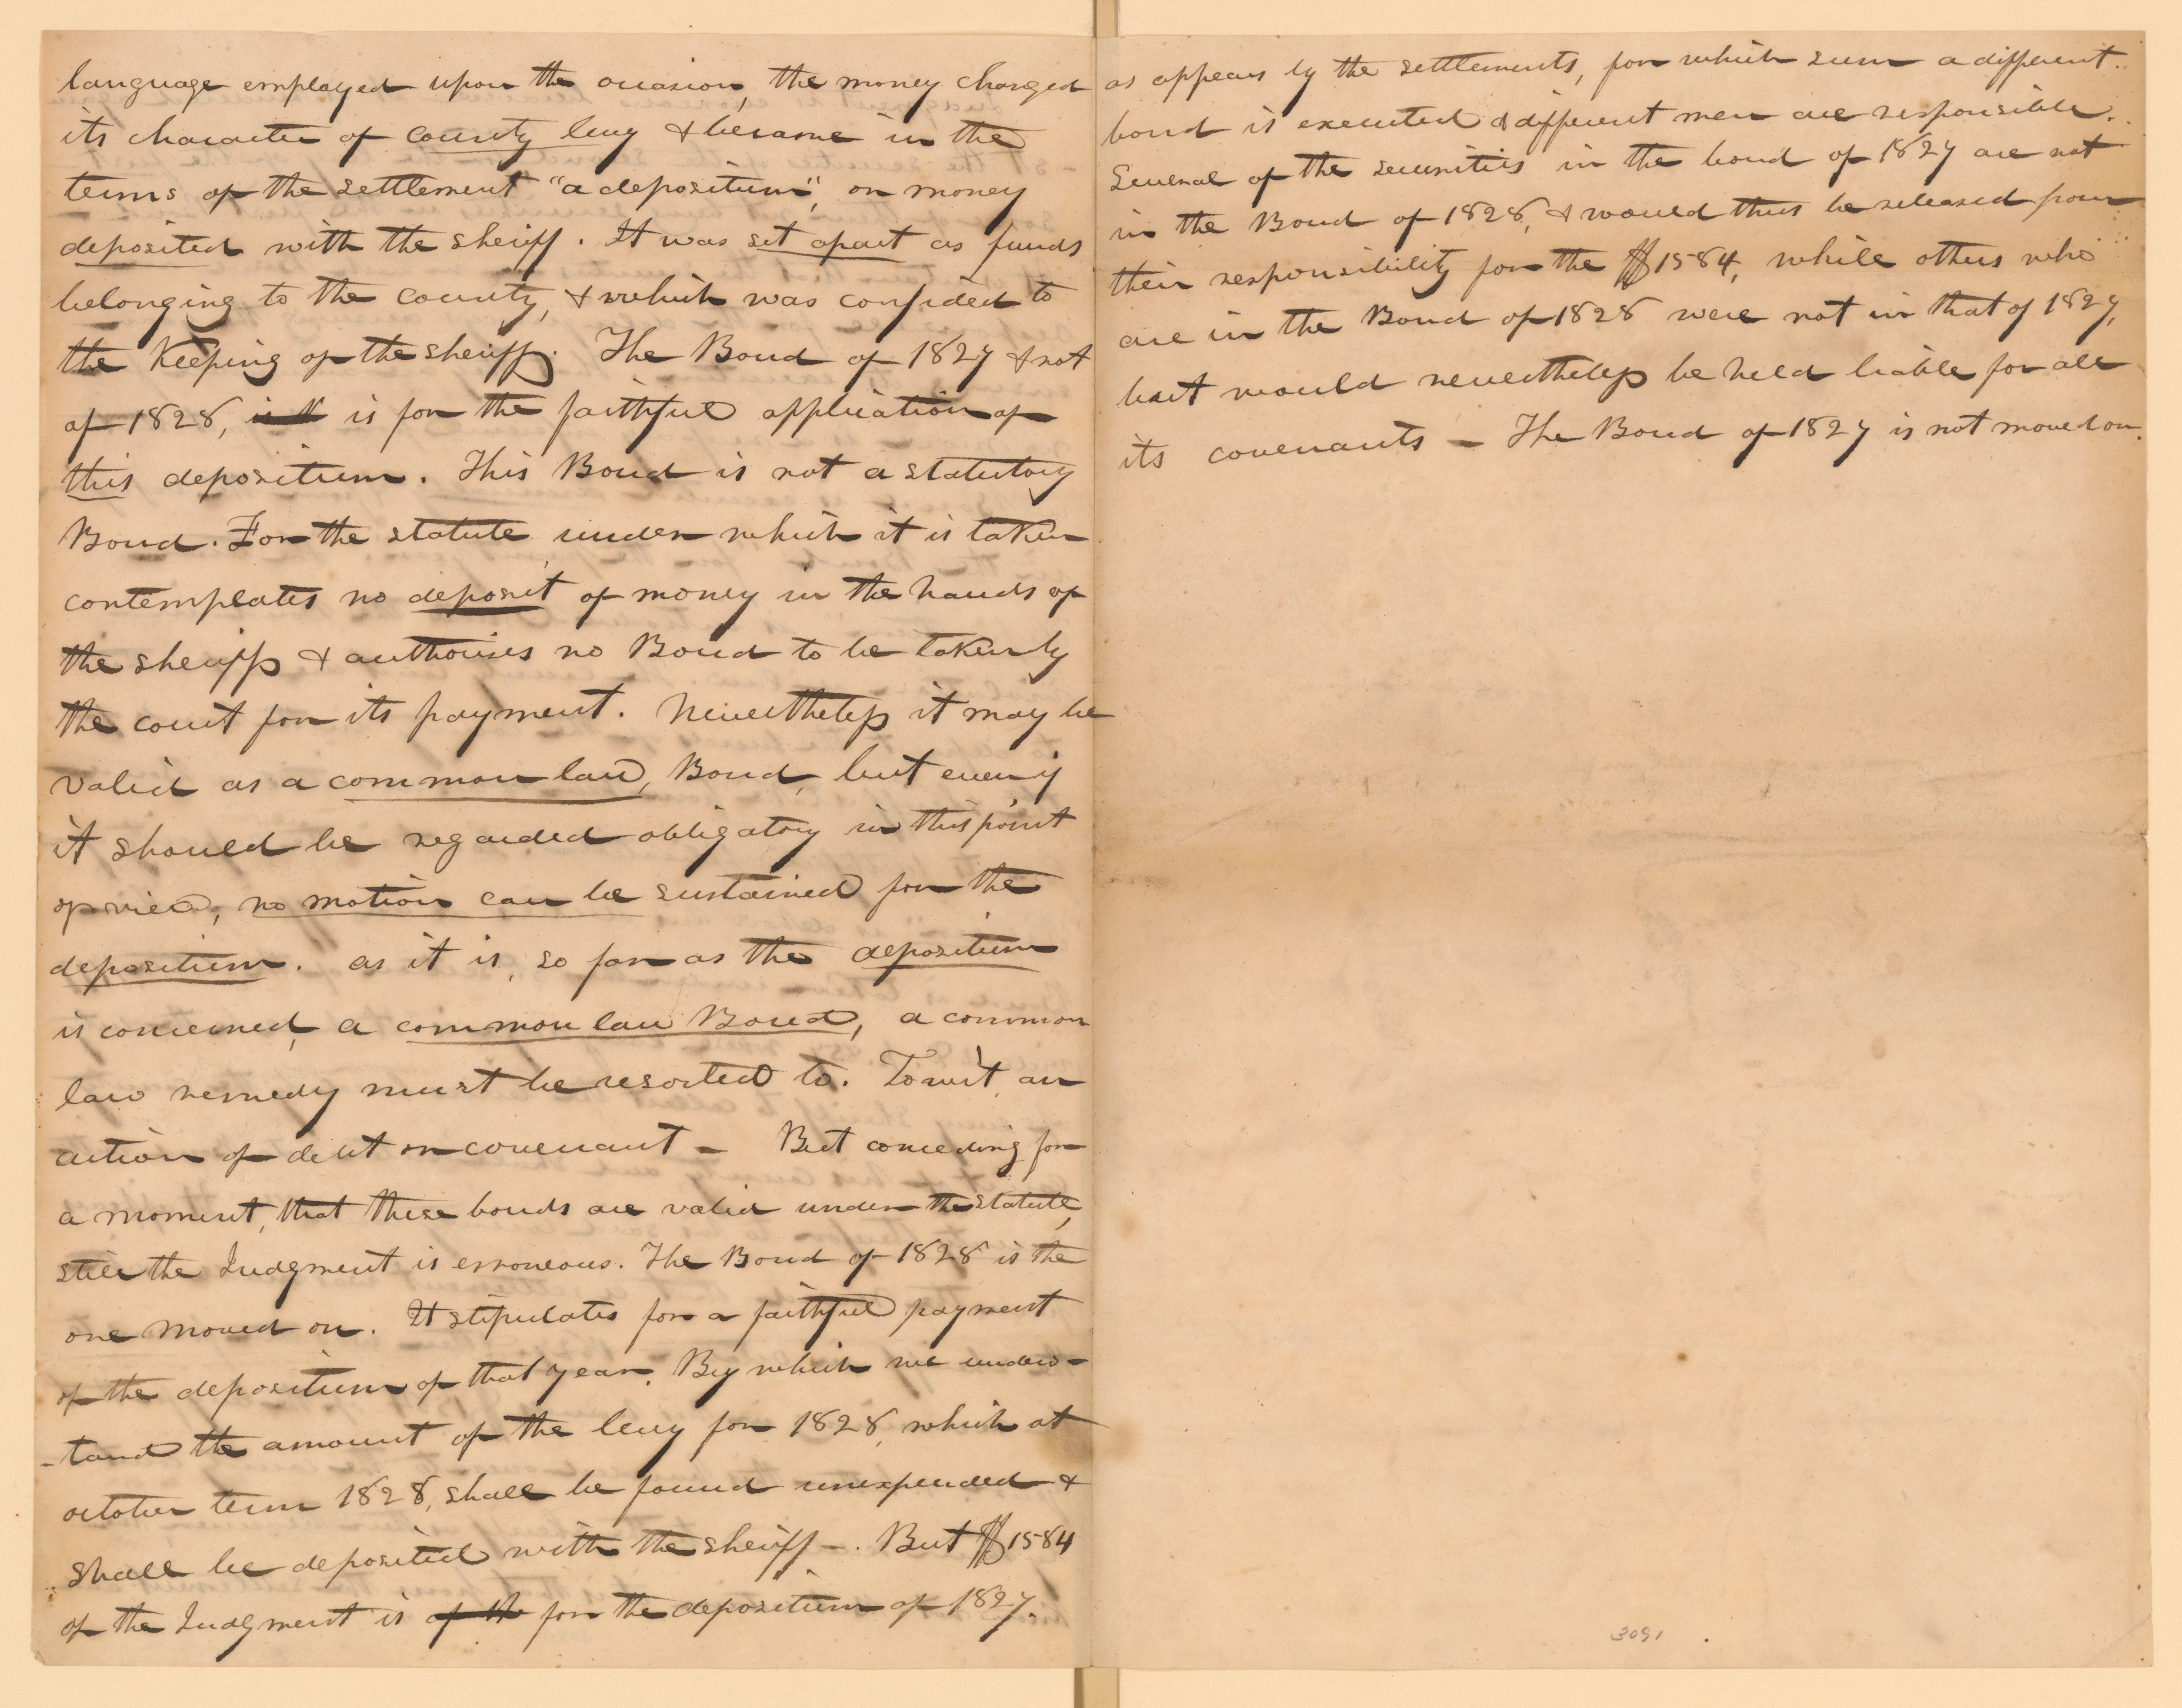 language employed upon the occasion, the money changed
its character of county levy & became in the
terms of the settlement "a depositum", or money
deposited with the sheriff. It was set apart as funds
belonging to the county, & which was confided to
the Keeping of the sheriff. The Bond of 1827 & not
of 1828, is for the faithful application of
this depositum. This Bond is not a statutory
Bond. For the statute under which it is taken
contemplates no deposit of money in the hands of
the sheriff & authorises no Bond to be taken by
the court for its payment. Nevertheless it may be
valid as a common law, Bond, but even if
it should be regarded obligatory in this point
of view, no motion can be sustained for the
depositum. as it is, so far as the depositum
is concerned, a common law Bond, a common
law remedy must be resorted to. Towit, an
action of debt or covenant – But conceding for
a moment, that these bonds are valid under the statute,
still the Judgment is erroneous. The Bond of 1828 is the
one moved on. It stipulates for a faithful payment
of the depositum of that year. By which we unders-
-tand the amount of the levy for 1828, which at
october term 1828, shall be found unexpended &
shall be deposited with the sheriff –. But $1584
of the Judgment is of the for the depositum of 1827.
as appears by the settlements, for which sum a different
bond is executed & different men are responsible.
Several of the securities in the bond of 1827 are not
in the Bond of 1828, & would thus be released from
their responsibility for the $1584, while others who
are in the Bond of 1828 were not in that of 1827,
but would nevertheless be held liable for all
its covenants – The Bond of 1827 is not moved on.
3091